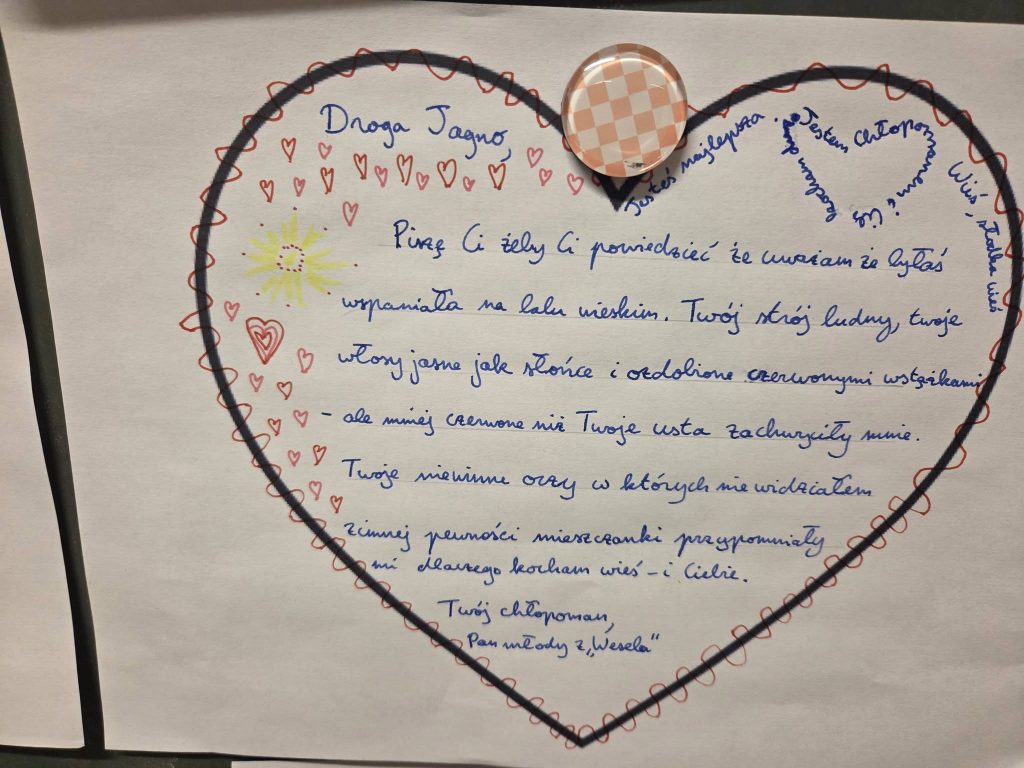 Droga Jagno,
Jesteś najlepsza.
Jestem chłopomanem i Cię kocham
Wieś, słodka wieś
Piszę Ci żeby Ci powiedzieć że uważam że byłaś
wspaniała na balu wieskim. Twój strój ludny, twoje
włosy jasne jak słońce i ozdobione czerwonymi wstążkami
- ale mniej czerwone niż Twoje usta zachwyciły mnie.
Twoje niewinne oczy w których nie widziałem
zimnej pewności mieszczanki przypomniały
mi dlaczego kocham wieś - i Ciebie.
Twój chłopoman,
Pan młody z „Wesela"